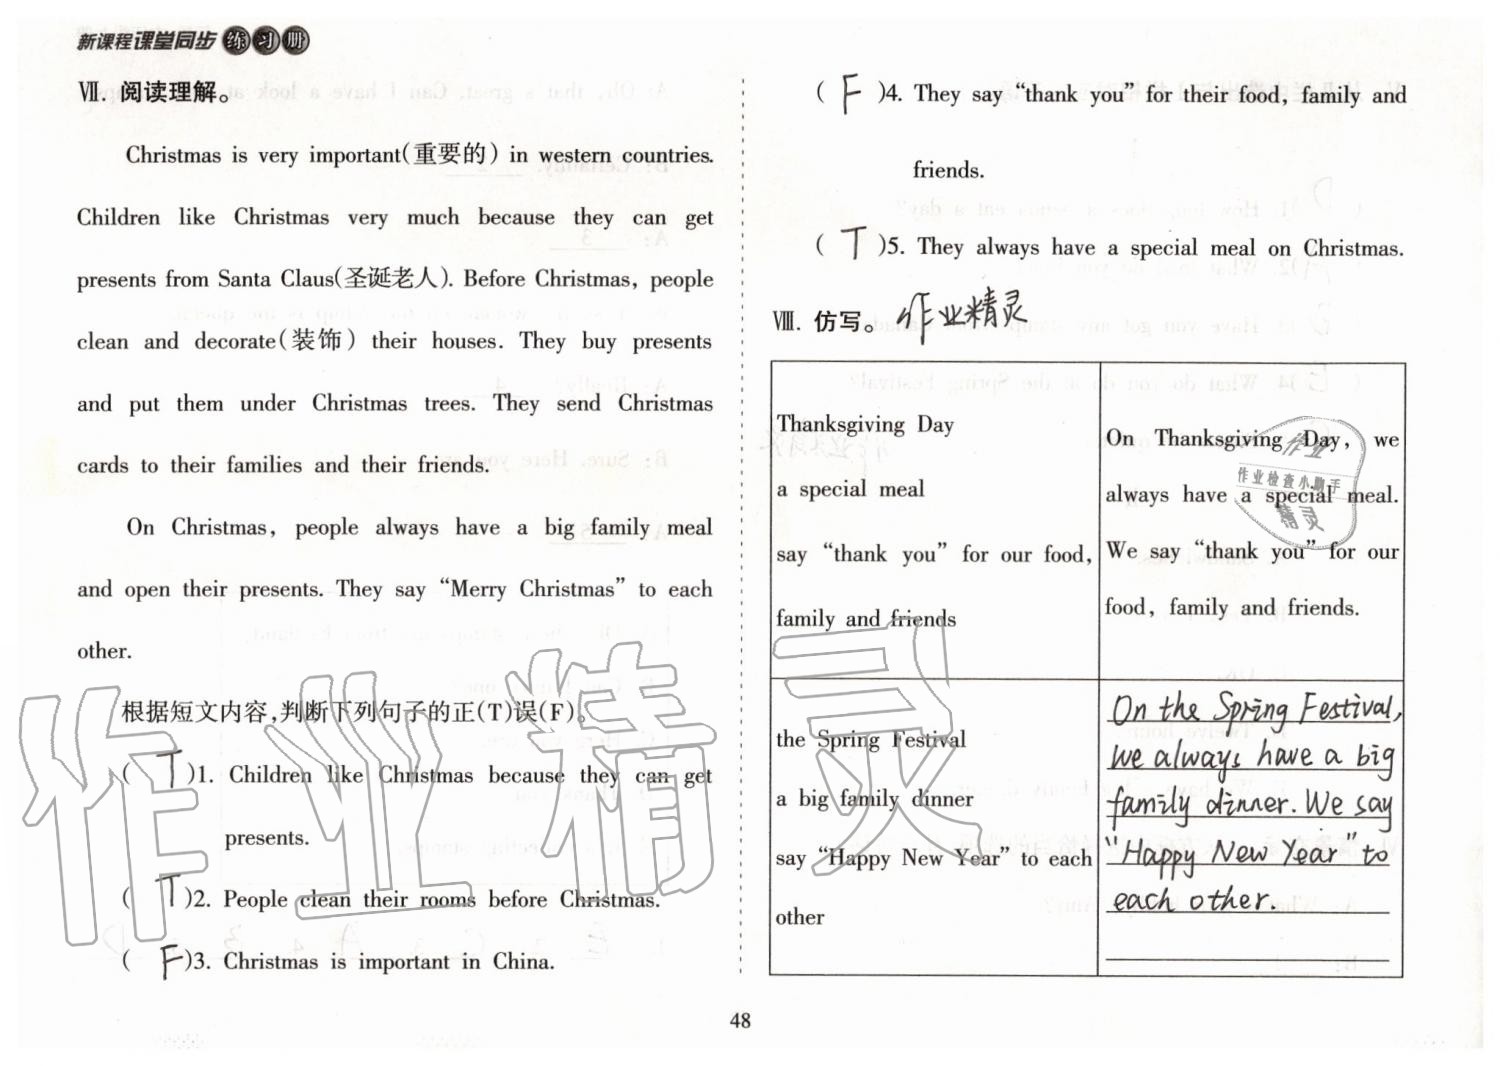 新课程课堂同步练习册
Ⅶ. 阅读理解。
Christmas is very important(重要的) in western countries.
Children like Christmas very much because they can get
presents from Santa Claus(圣诞老人). Before Christmas, people
clean and decorate(装饰) their houses. They buy presents
and put them under Christmas trees. They send Christmas
cards to their families and their friends.
On Christmas, people always have a big family meal
and open their presents. They say “Merry Christmas” to each
other.
根据短文内容,判断下列句子的正(T)误(F)。
( T )1. Children like Christmas because they can get
presents.
( T )2. People clean their rooms before Christmas.
( F )3. Christmas is important in China.
( F )4. They say “thank you” for their food, family and
friends.
( T )5. They always have a special meal on Christmas.
Ⅷ. 仿写。 作业精灵
Thanksgiving Day
a special meal
say “thank you” for our food,
family and friends
On Thanksgiving Day, we
always have a special meal.
We say “thank you” for our
food, family and friends.
作业
作业检查小助手
精灵
the Spring Festival
a big family dinner
say “Happy New Year” to each
other
On the Spring Festival,
we always have a big
family dinner. We say
“Happy New Year” to
each other.
作业精灵
48